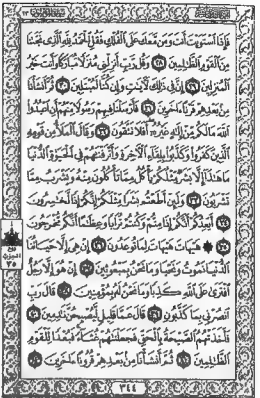 فَإِذَا ٱسْتَوَيْتَ أَنتَ وَمَن مَّعَكَ عَلَى ٱلْفُلْكِ فَقُلِ ٱلْحَمْدُ لِلَّهِ ٱلَّذِى نَجَّىٰنَا
مِنَ ٱلْقَوْمِ ٱلظَّٰلِمِينَ ٢٨ وَقُل رَّبِّ أَنزِلْنِى مُنزَلًا مُّبَارَكًا وَأَنتَ خَيْرُ
ٱلْمُنزِلِينَ ٢٩ إِنَّ فِى ذَٰلِكَ لَـَٔايَٰتٍ وَإِن كُنَّا لَمُبْتَلِينَ ٣٠ ثُمَّ أَنشَأْنَا
مِنۢ بَعْدِهِمْ قَرْنًا ءَاخَرِينَ ٣١ فَأَرْسَلْنَا فِيهِمْ رَسُولًا مِّنْهُمْ أَنِ ٱعْبُدُوا۟
ٱللَّهَ مَا لَكُم مِّنْ إِلَٰهٍ غَيْرُهُۥٓ أَفَلَا تَتَّقُونَ ٣٢ وَقَالَ ٱلْمَلَأُ مِن قَوْمِهِ
ٱلَّذِينَ كَفَرُوا۟ وَكَذَّبُوا۟ بِلِقَآءِ ٱلْـَٔاخِرَةِ وَأَتْرَفْنَٰهُمْ فِى ٱلْحَيَوٰةِ ٱلدُّنْيَا
مَا هَٰذَآ إِلَّا بَشَرٌ مِّثْلُكُمْ يَأْكُلُ مِمَّا تَأْكُلُونَ مِنْهُ وَيَشْرَبُ مِمَّا
تَشْرَبُونَ ٣٣ وَلَئِنْ أَطَعْتُم بَشَرًا مِّثْلَكُمْ إِنَّكُمْ إِذًا لَّخَٰسِرُونَ
٣٤ أَيَعِدُكُمْ أَنَّكُمْ إِذَا مِتُّمْ وَكُنتُمْ تُرَابًا وَعِظَٰمًا أَنَّكُم مُّخْرَجُونَ
٣٥ ۞ هَيْهَاتَ هَيْهَاتَ لِمَا تُوعَدُونَ ٣٦ إِنْ هِىَ إِلَّا حَيَاتُنَا
ٱلدُّنْيَا نَمُوتُ وَنَحْيَا وَمَا نَحْنُ بِمَبْعُوثِينَ ٣٧ إِنْ هُوَ إِلَّا رَجُلٌ
ٱفْتَرَىٰ عَلَى ٱللَّهِ كَذِبًا وَمَا نَحْنُ لَهُۥ بِمُؤْمِنِينَ ٣٨ قَالَ رَبِّ
ٱنصُرْنِى بِمَا كَذَّبُونِ ٣٩ قَالَ عَمَّا قَلِيلٍ لَّيُصْبِحُنَّ نَٰدِمِينَ ٤٠
فَأَخَذَتْهُمُ ٱلصَّيْحَةُ بِٱلْحَقِّ فَجَعَلْنَٰهُمْ غُثَآءً فَبُعْدًا لِّلْقَوْمِ
ٱلظَّٰلِمِينَ ٤١ ثُمَّ أَنشَأْنَا مِنۢ بَعْدِهِمْ قُرُونًا ءَاخَرِينَ ٤٢
٣٤٤